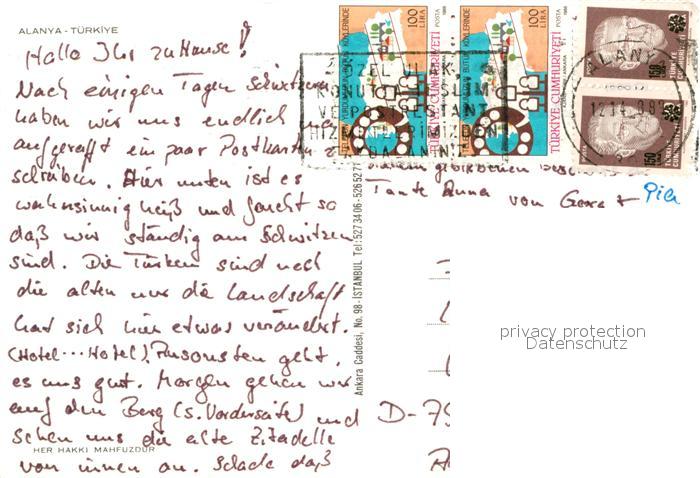 ALANYA - TÜRKİYE
Hallo Ihr zuHause!
Nach einigen Tagen Schwitzen
haben wir uns endlich
aufgerafft ein paar Postkarten
schreiben. Hier unten ist es
wahnsinnig heiß und feucht so
daß wir ständig am Schwitzen
sind. Die Türken sind noch
die alten nur die Landschaft
hat sich hier etwas verändert.
(Hotel...Hotel). Ansonsten geht
es uns gut. Morgen gehen wir
auf den Berg (s. Vorderseite) und
sehen uns die alte Zitadelle
HER HAKKI MAHFUZDUR
von innen an. Schade daß
Ankara Caddesi, No. 98-İSTANBUL Tel: 5273406-5265271
100
LİRA
POSTA
1988
TÜRKİYE CUMHURİYETİ
100
LİRA
POSTA
1988
TÜRKİYE CUMHURİYETİ
ÖZEL ULAK,
VE
HİZMETLERİMİZDEN
50
50
Tante Anna
von Gera +
D-79
privacy protection
Datenschutz